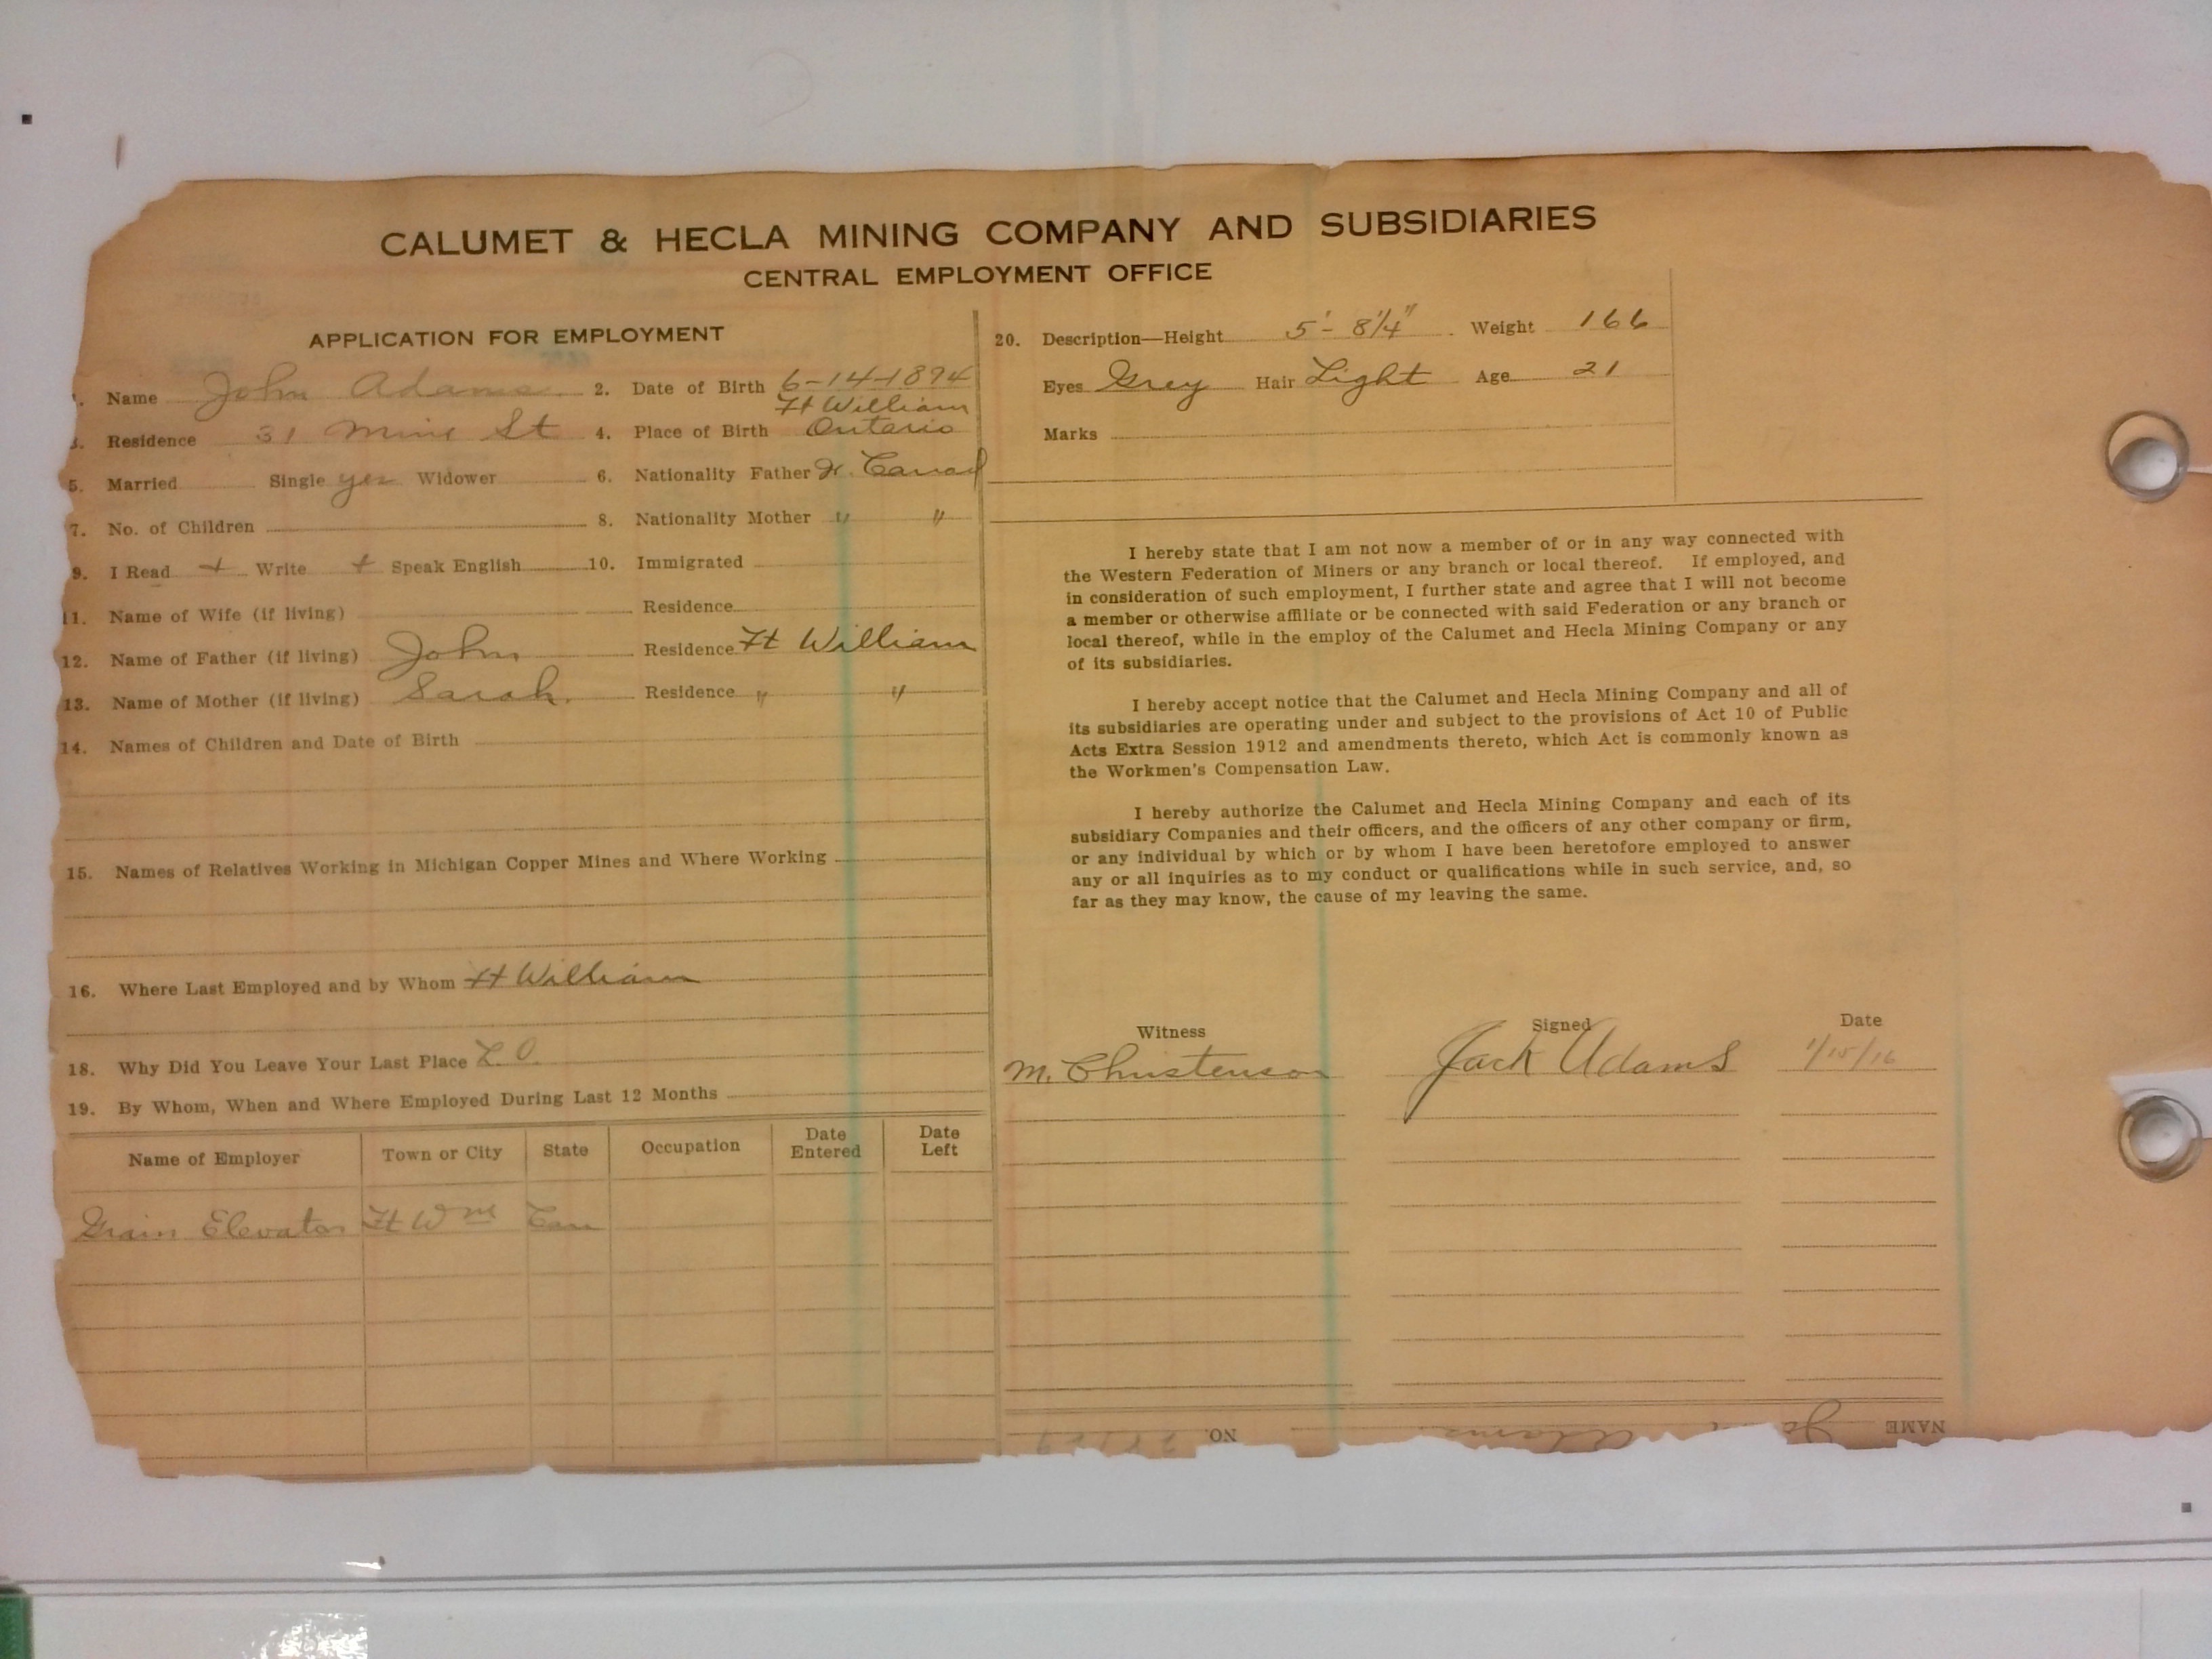 CALUMET & HECLA MINING COMPANY AND SUBSIDIARIES
CENTRAL EMPLOYMENT OFFICE
APPLICATION FOR EMPLOYMENT
1. Name John Adams 2. Date of Birth 6-14-1894
Ft William
3. Residence 31 Mine St 4. Place of Birth Ontario
5. Married Single yes Widower 6. Nationality Father Fr. Canad
7. No. of Children 8. Nationality Mother " "
9. I Read + Write + Speak English 10. Immigrated
11. Name of Wife (if living) Residence
12. Name of Father (if living) John Residence Ft William
13. Name of Mother (if living) Sarah. Residence " "
14. Names of Children and Date of Birth
15. Names of Relatives Working in Michigan Copper Mines and Where Working
16. Where Last Employed and by Whom Ft William
18. Why Did You Leave Your Last Place L.O.
19. By Whom, When and Where Employed During Last 12 Months
Name of Employer Town or City State Occupation Date Entered Date Left
Grain Elevator Ft Wm Can
20. Description—Height 5'- 8 1/4" Weight 166
Eyes Grey Hair Light Age 21
Marks
I hereby state that I am not now a member of or in any way connected with
the Western Federation of Miners or any branch or local thereof. If employed, and
in consideration of such employment, I further state and agree that I will not become
a member or otherwise affiliate or be connected with said Federation or any branch or
local thereof, while in the employ of the Calumet and Hecla Mining Company or any
of its subsidiaries.
I hereby accept notice that the Calumet and Hecla Mining Company and all of
its subsidiaries are operating under and subject to the provisions of Act 10 of Public
Acts Extra Session 1912 and amendments thereto, which Act is commonly known as
the Workmen's Compensation Law.
I hereby authorize the Calumet and Hecla Mining Company and each of its
subsidiary Companies and their officers, and the officers of any other company or firm,
or any individual by which or by whom I have been heretofore employed to answer
any or all inquiries as to my conduct or qualifications while in such service, and, so
far as they may know, the cause of my leaving the same.
Witness Signed Date
M. Christenson Jack Adams 1/15/16
NAME Adams NO.